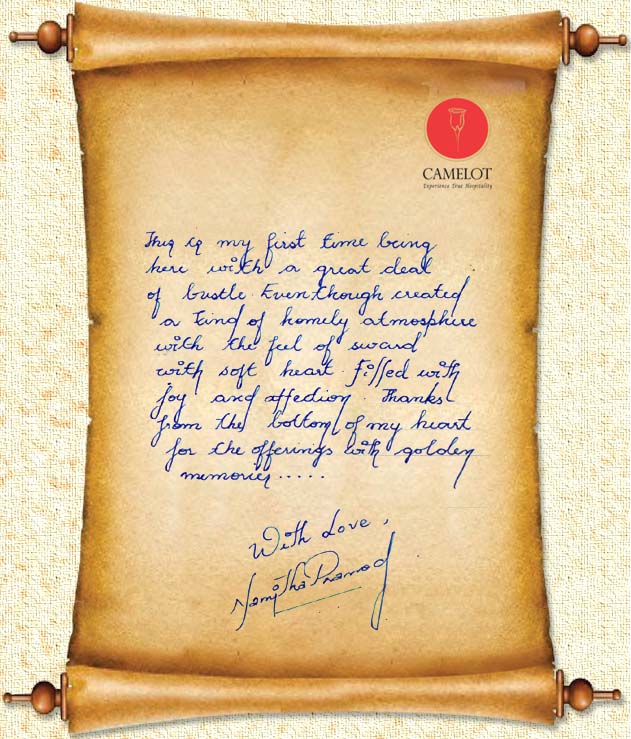 CAMELOT
Experience True Hospitality
This is my first time being
here with a great deal
of bustle. Eventhough created
a kind of homely atmosphere
with the feel of sward
with soft heart filled with
joy and affection. Thanks
from the bottom of my heart
for the offerings with golden
memories.....
With Love,
Namitha Pramod